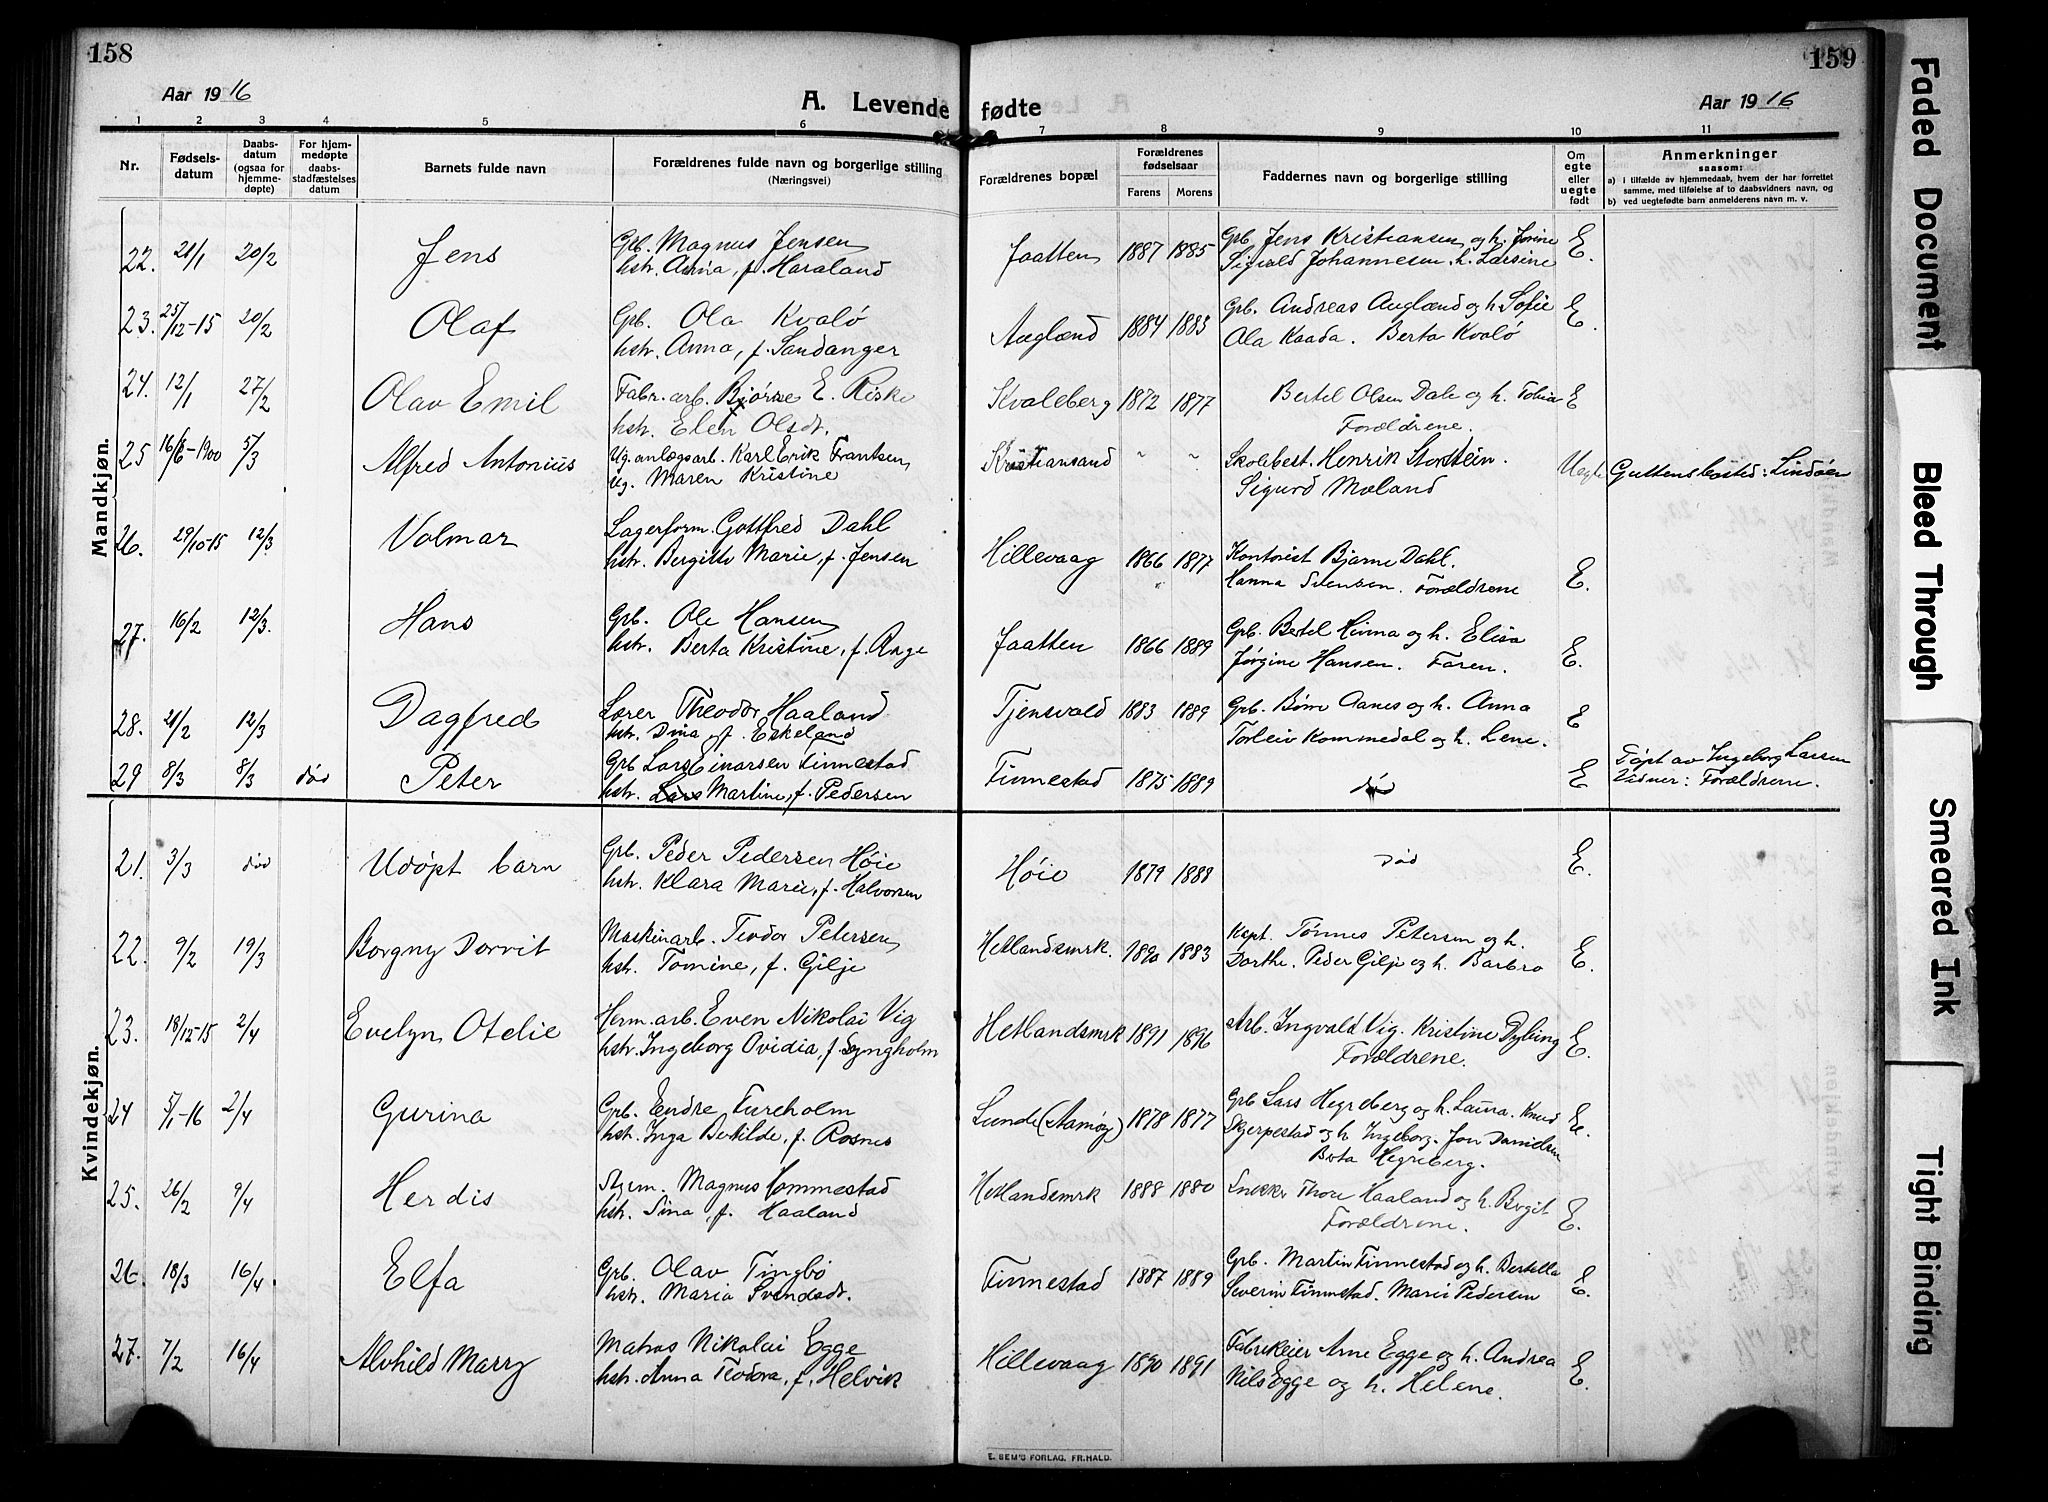 158
159
Aar 1916
A. Levende fødte
Aar 1916
1 2 3 4 5 6 7 8 9 10 11
Nr.
Fødselsdatum
Daabsdatum (ogsaa for hjemmedøpte)
For hjemmedøpte daabsstadfæstelses datum
Barnets fulde navn
Forældrenes fulde navn og borgerlige stilling
(Næringsvei)
Forældrenes bopæl
Forældrenes fødselsaar
Farens Morens
Faddernes navn og borgerlige stilling
Om egte eller uegte født
Anmerkninger
saasom:
a) i tilfælde av hjemmedaab, hvem der har forrettet
samme, med tilføielse af to daabsvidners navn, og
b) ved uegtefødte barn anmelderens navn m. v.
Mandkjøn.
22. 21/1 20/2 Jens Grb. Magnus Jensen Jaatten 1887 1885 Grb. Jens Kristiansen og h. Jorine E.
hstr. Anna, f. Haraland Sigvald Johannesen. h. Larsine
23. 25/12-15 20/2 Olaf Grb. Ola Kvalø Auglænd 1884 1883 Grb. Andreas Auglænd og h. Sofie E.
hstr. Anna, f. Sandanger Ola Kaada. Berta Kvalø
24. 12/1 27/2 Olav Emil Fabr. arb. Bjørne E. Riske Kvaleberg 1872 1877 Bertel Olsen Dale og h. Tobia E
hstr. Elen Olsdt. Forældrene.
25 16/8-1900 5/3 Alfred Antonius Ug. anlægsarb. Karl Erik Frantsen Kristiansand " " Skolebest. Henrik Storstein. Uegte Guttens bosted: Lindøen
Ug. Maren Kristine Sigurd Moland
26. 29/10-15 12/3 Volmar Lagerform. Gottfred Dahl Hillevaag 1866 1877 Kontorist Bjarne Dahl. E.
hstr. Bergitte Marie, f. Jensen Hanna Svensen. Forældrene
27. 16/2 12/3. Hans Grb. Ole Hansen Jaatten 1866 1889 Grb. Bertel Hinna og h. Elisa E.
hstr. Berta Kristine, f. Rage Jørgine Hansen. Faren.
28. 21/2 12/3 Dagfred Lærer Theodor Haaland Tjensvold 1883 1889 Grb. Børre Aanes og h. Anna E
hstr. Dina f. Eskeland Torleiv Kommedal og h. Lene.
29 8/3 8/3 død Peter Grb Lars Einarsen Finnestad Finnestad 1875 1889 død E Døpt av Ingeborg Larsen
hstr. Martine, f. Pedersen Vidner: Forældrene.
Kvindekjøn.
21. 3/3 død Udøpt barn Grb. Peder Pedersen Høie Høie 1879 1888 død E.
hstr. Klara Marie, f. Halvorsen
22. 9/2 19/3 Borgny Dorrit Maskinarb. Teodor Petersen Hetlandsmrk. 1890 1883 Kapt. Tønnes Petersen og h. E.
hstr. Tomine, f. Gilje Dorthe. Peder Gilje og h. Barbro
23. 18/12-15 2/4 Evelyn Otelie Herm. arb. Even Nikolai Vig Hetlandsmrk 1891 1896 Arb. Ingvald Vig. Kristine Dybing E.
hstr. Ingeborg Ovidia, f. Lyngholm Forældrene.
24 5/1-16 2/4 Gurina Grb. Endre Fureholm Lunde (Aamøy) 1878 1877 Grb Lars Hegreberg og h. Launa. Knud E.
hstr. Inga Bertilde, f. Rosnes Skjerpestad og h Ingeborg. Jon Danielsen
Berta Hegreberg.
25. 26/2 9/4 Herdis Magnus Hommestad Hetlandsmrk 1888 1880 Snekker Thore Haaland og h. Birgit E.
hstr. Sina, f. Haaland Forældrene.
26. 18/3 16/4. Elfa Grb. Olav Tingbø Finnestad 1887 1889 Grb. Martin Finnestad og h. Bertella E.
hstr. Maria Svendsdt. Severin Finnestad. Marie Pedersen
27. 7/2 16/4 Alvhild Marry Matros Nikolai Egge Hillevaag 1890 1891 Fabrikeier Arne Egge og h. Andrea E.
hstr. Anna Teodora, f. Helvik Nils Egge og h. Helene.
E. SEM'S FORLAG, FR.HALD.
Faded Document
Bleed Through
Smeared Ink
Tight Binding